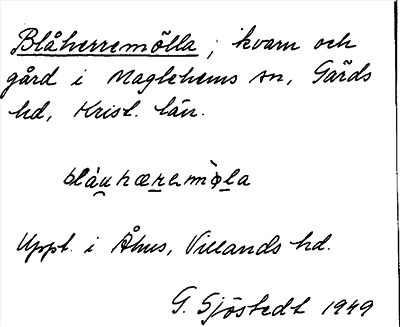 Blåherremölla, kvarn och
gård i Maglehems sn, Gärds
hd, Krist. län.
Uppt. i Åhus, Villands hd.
G. Sjöstedt 1949